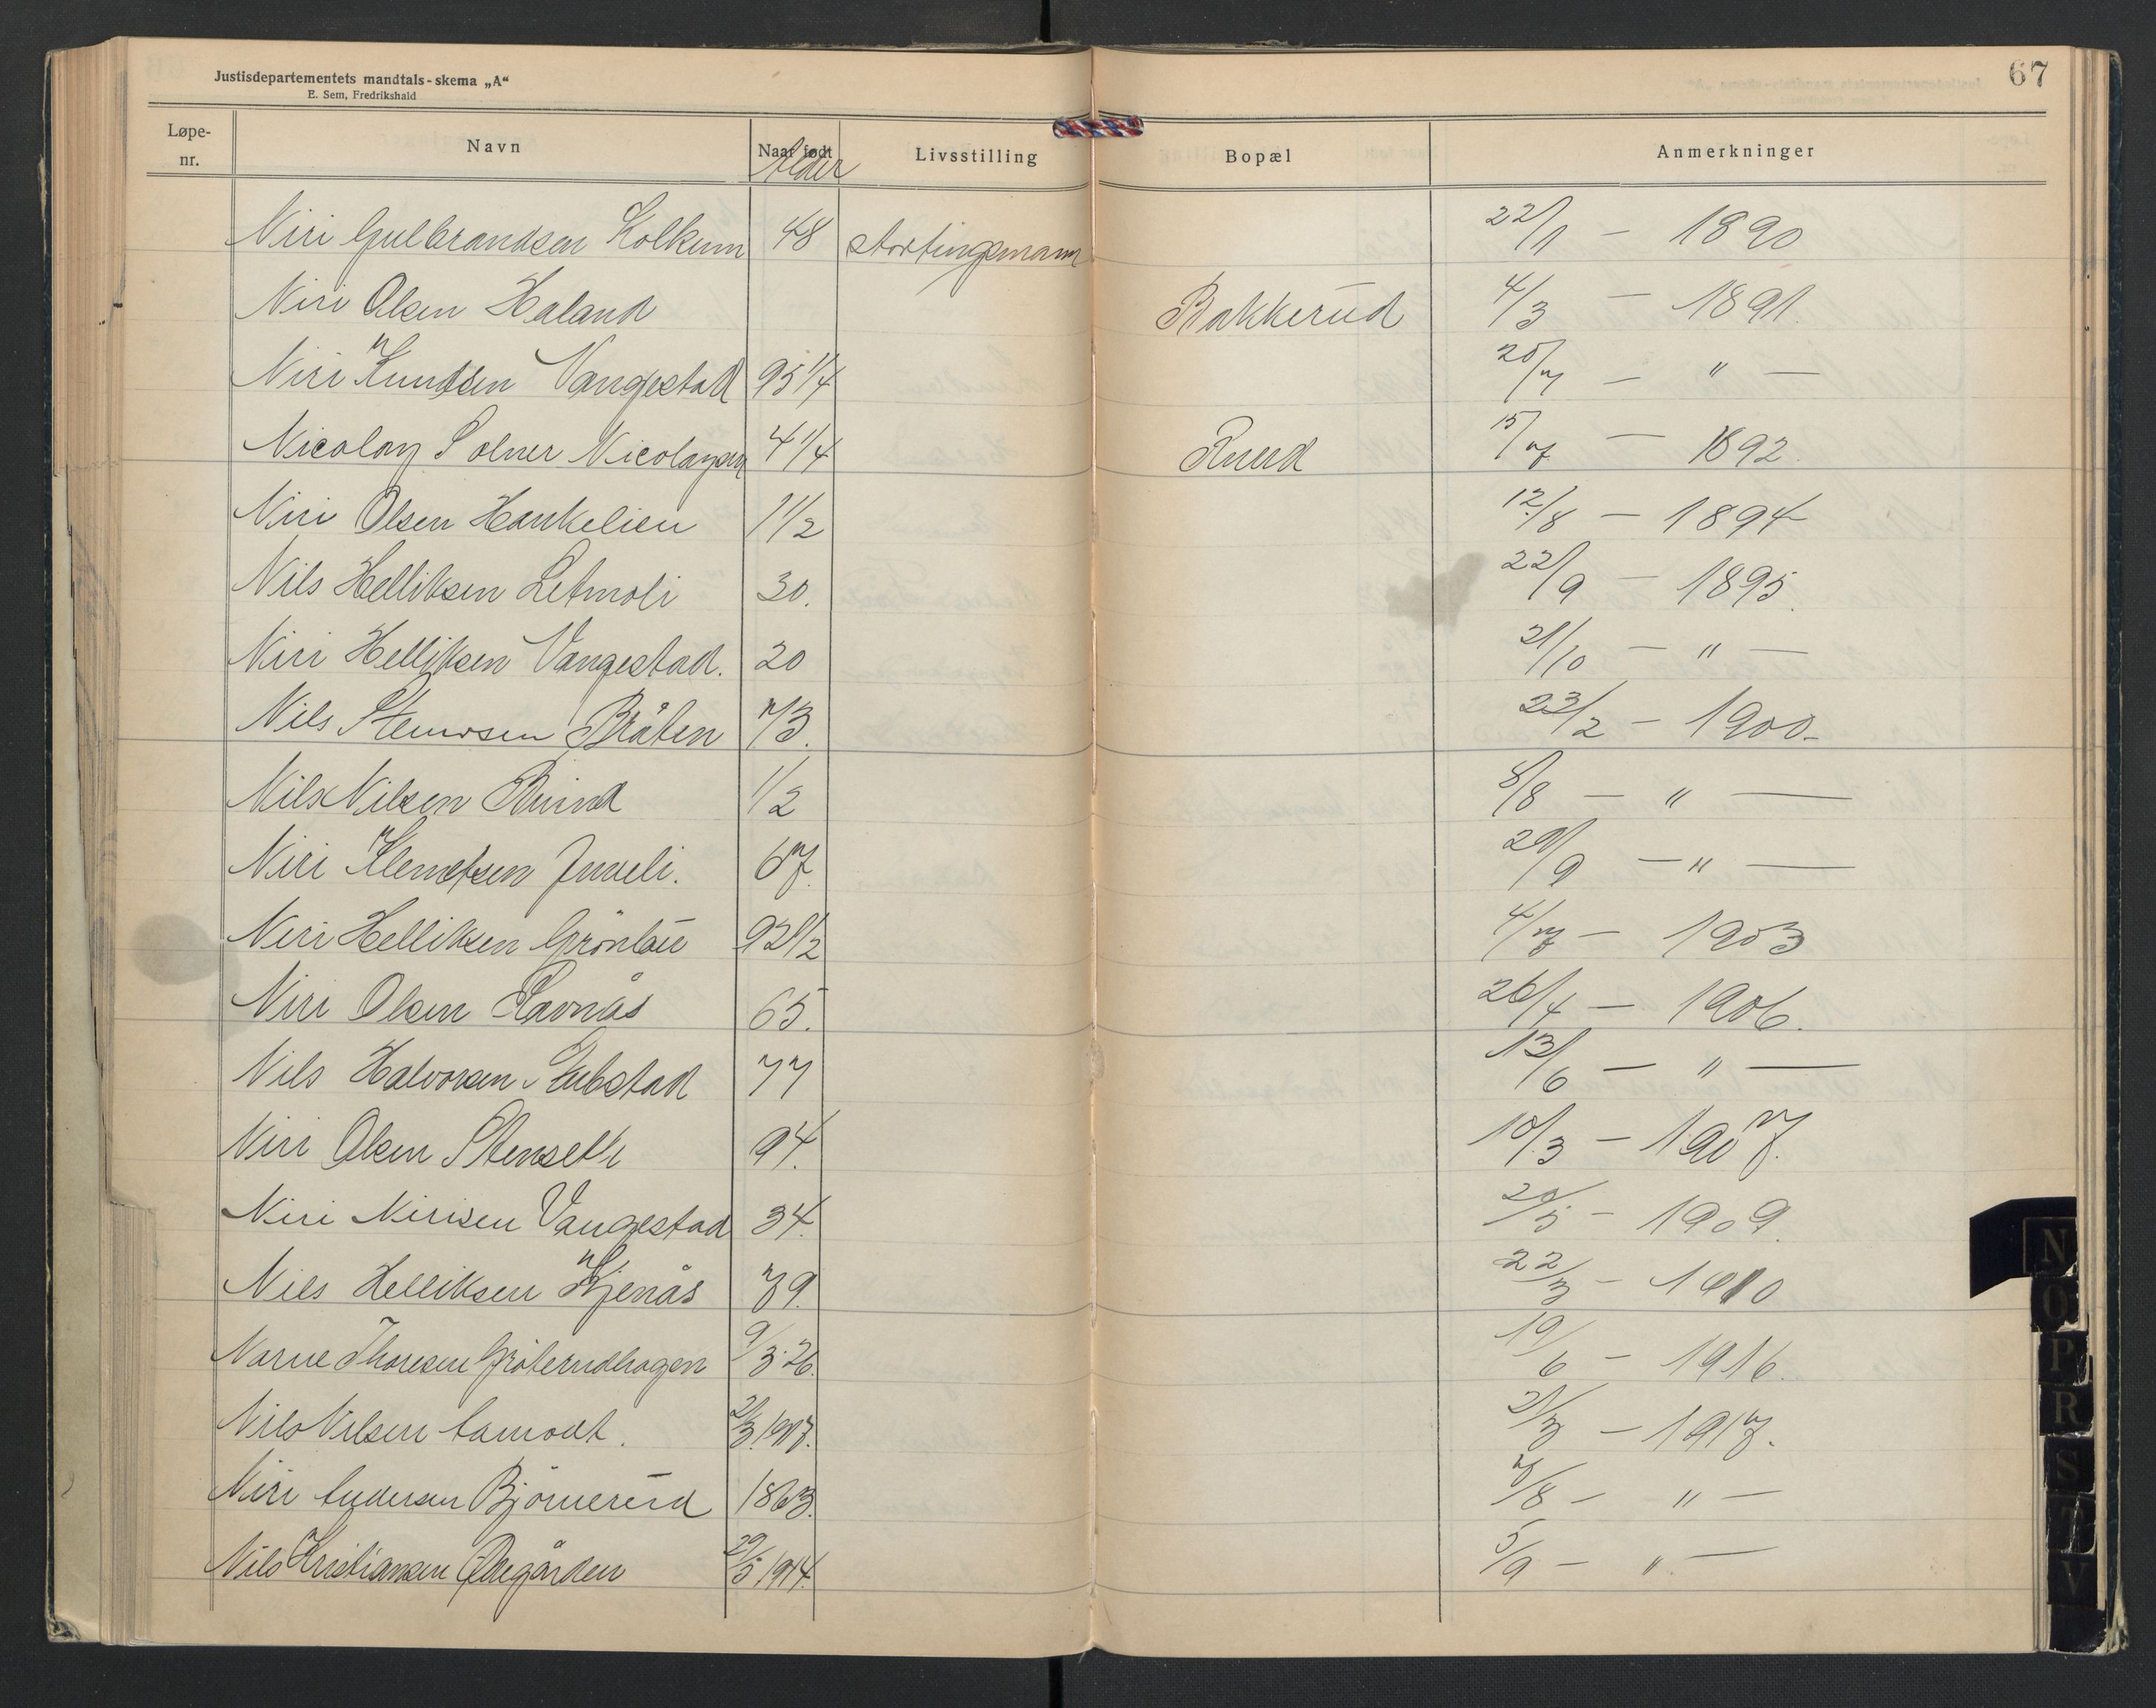 Justisdepartementets mandtals-skema „A“
E. Sem, Fredrikshald
67
Løpe-nr. Navn Naar født Alder Livsstilling Bopæl Anmerkninger
Niri Gulbrandsen Kolkinn 48 stortingsmann 22/1 — 1890
Niri Olsen Haland Bakkerud 4/3 — 1891.
Niri Knudsen Vangestad 95 1/4 20/7 — " —
Nicolay Solner Nicolaysen 4 1/4 Ruud 15/7 — 1892.
Niri Olsen Haukelien 1 1/2 12/8 — 1894
Nils Helliksen Letmoli 30. 22/9 — 1895.
Niri Helliksen Vangestad. 20 21/10 — " —
Nils Steinrsen Bråten 7/3. 23/2 — 1900.
Nils Nilsen Ruud 1/2 8/8 — " —
Niri Klemetsen Juveli. 67. 29/9 — " —
Niri Helliksen 92 1/2 4/7 — 1903
Niri Olsen Ravnås 65. 26/4 — 1906.
Nils Halvorsen Stubstad 77 13/6 — " —
Niri Olsen Stensett 94. 10/3 — 1907.
Niri Nirisen Vangestad 34. 29/5 — 1909.
Nils Helliksen Kjenås 79. 22/3 — 1910
Narve Thoresen Gråterudhagen 9/3.26. 19/6 — 1916.
Nils Nilsen Aamodt. 2/3.1917. 21/3 — 1917.
Niri Andersen Björnerud 1863. 7/8 — " —
Nils Kristiansen Ödegården 29/5.1914. 5/9 — " —
N
O
P
R
S
T
V